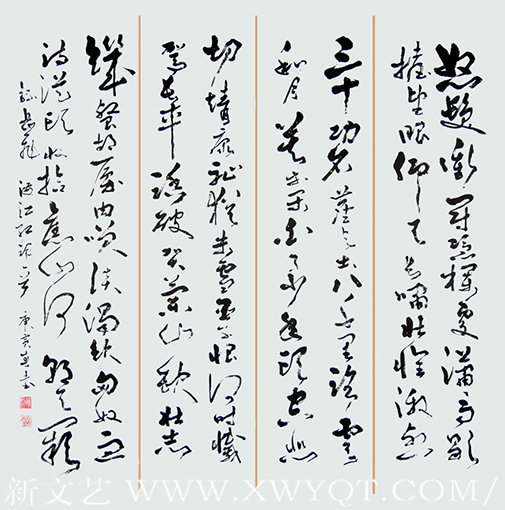 怒髮衝冠憑欄處瀟瀟雨歇
抬望眼仰天長嘯壯懷激烈
三十功名塵與土八千里路雲
和月莫等閒白了少年頭空悲
切靖康恥猶未雪臣子恨何時滅
駕長車踏破賀蘭山缺壯志
飢餐胡虜肉笑談渴飲匈奴血
待從頭收拾舊山河朝天闕
岳飛滿江紅詞一首
新文艺 WWW.XWYQT.COM/